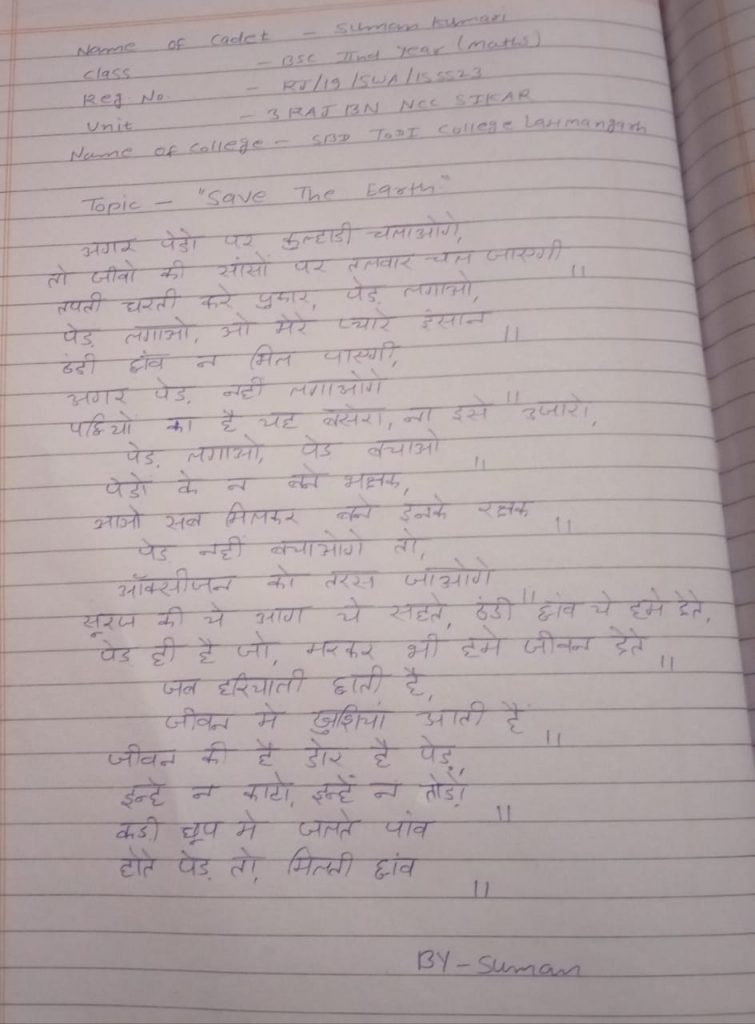 Name of Cadet - Suman Kumari
Class - BSC IInd Year (maths)
Reg. No. - RJ/19/SWA/155523
Unit - 3 RAJ BN NCC SIKAR
Name of College - SBD TODI College Laxmangarh
Topic - "Save The Earth"
अगर पेडो पर कुल्हाडी चलाओगे,
तो जीवो की सांसों पर तलवार चल जाएगी ॥
तपती धरती करे पुकार, पेड़ लगाओ,
पेड़ लगाओ, ओ मेरे प्यारे इंसान ॥
ठंडी छांव न मिल पाएगी,
अगर पेड़ नहीं लगाओगे ॥
पंछियों का है यह बसेरा, ना इसे उजारो,
पेड़ लगाओ, पेड बचाओ ॥
पेडों के न बने भक्षक,
आओ सब मिलकर बने इनके रक्षक ॥
पेड नहीं बचाओगे तो,
ऑक्सीजन को तरस जाओगे ॥
सूरज की ये आग ये सहते, ठंडी छांव ये हमे देते,
पेड ही है जो, मरकर भी हमे जीवन देते ॥
जब हरियाली छाती है,
जीवन मे खुशियां आती है ॥
जीवन की है डोर है पेड़,
इन्हे न काटो, इन्हें न तोड़ो ॥
कडी धूप मे जलते पांव
होते पेड़ तो, मिलती छांव ॥
BY - Suman